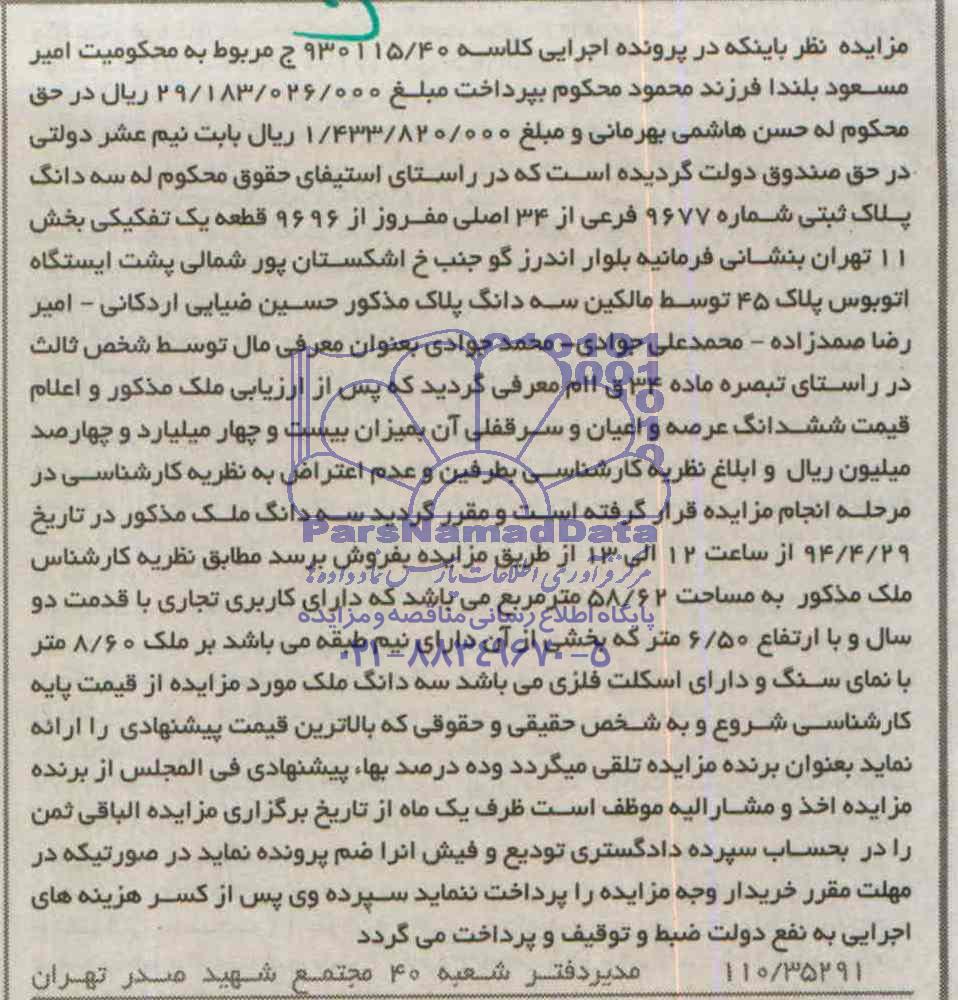 مزایده نظر باینکه در پرونده اجرایی کلاسه ۹۳۰۱۱۵/۴۰ ج مربوط به محکومیت امیر
مسعود بلندا فرزند محمود محکوم بپرداخت مبلغ ۲۹/۱۸۳/۰۲۶/۰۰۰ ریال در حق
محکوم له حسن هاشمی بهرمانی و مبلغ ۱/۴۳۳/۸۲۰/۰۰۰ ریال بابت نیم عشر دولتی
در حق صندوق دولت گردیده است که در راستای استیفای حقوق محکوم له سه دانگ
پلاک ثبتی شماره ۹۶۷۷ فرعی از ۳۴ اصلی مفروز از ۹۶۹۶ قطعه یک تفکیکی بخش
۱۱ تهران بنشانی فرمانیه بلوار اندرز گو جنب خ اشکستان پور شمالی پشت ایستگاه
اتوبوس پلاک ۴۵ توسط مالکین سه دانگ پلاک مذکور حسین ضیایی اردکانی - امیر
رضا صمدزاده - محمدعلی جوادی - محمد جوادی بعنوان معرفی مال توسط شخص ثالث
در راستای تبصره ماده ۳۴ ق اام معرفی گردید که پس از ارزیابی ملک مذکور و اعلام
قیمت ششدانگ عرصه و اعیان و سرقفلی آن بمیزان بیست و چهار میلیارد و چهارصد
میلیون ریال و ابلاغ نظریه کارشناسی بطرفین و عدم اعتراض به نظریه کارشناسی در
مرحله انجام مزایده قرار گرفته است و مقرر گردید سه دانگ ملک مذکور در تاریخ
ParsNamadData
۹۴/۴/۲۹ از ساعت ۱۲ الی ۱۳ از طریق مزایده بفروش برسد مطابق نظریه کارشناس
مرکز فرآوری اطلاعات پارس نماد داده ها
ملک مذکور به مساحت ۵۸/۶۲ مترمربع می باشد که دارای کاربری تجاری با قدمت دو
پایگاه اطلاع رسانی مناقصه و مزایده
سال و با ارتفاع ۶/۵۰ متر که بخشی از آن دارای نیم طبقه می باشد بر ملک ۸/۶۰ متر
۰۲۱-۸۸۳۴۹۶۷۰-۵
با نمای سنگ و دارای اسکلت فلزی می باشد سه دانگ ملک مورد مزایده از قیمت پایه
کارشناسی شروع و به شخص حقیقی و حقوقی که بالاترین قیمت پیشنهادی را ارائه
نماید بعنوان برنده مزایده تلقی میگردد وده درصد بهاء پیشنهادی فی المجلس از برنده
مزایده اخذ و مشارالیه موظف است ظرف یک ماه از تاریخ برگزاری مزایده الباقی ثمن
را در بحساب سپرده دادگستری تودیع و فیش انرا ضم پرونده نماید در صورتیکه در
مهلت مقرر خریدار وجه مزایده را پرداخت ننماید سپرده وی پس از کسر هزینه های
اجرایی به نفع دولت ضبط و توقیف و پرداخت می گردد
۱۱۰/۳۵۲۹۱ مدیردفتر شعبه ۴۰ مجتمع شهید صدر تهران